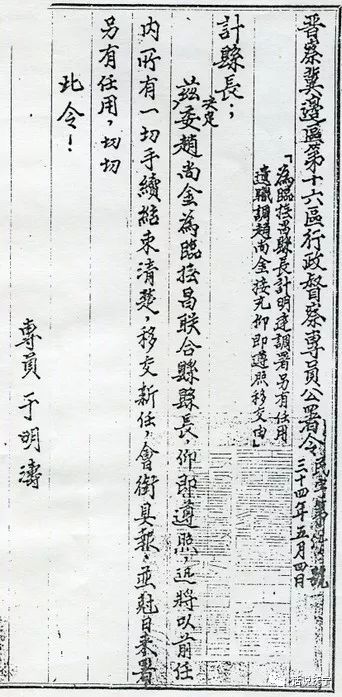 晉察冀邊區第十六區行政督察專員公署令
民字第 號
三十四年五月四日
「為臨撫昌縣長計明達調署另有任用
遺職調趙尚金接充仰即遵照移交由」
計縣長;
決定
茲委趙尚金為臨撫昌联合縣縣長,仰即遵照,迅將以前任
內所有一切手續結束清楚,移交新任,會銜具報,並尅日來署
另有任用,切切
此令!
專員 于明濤